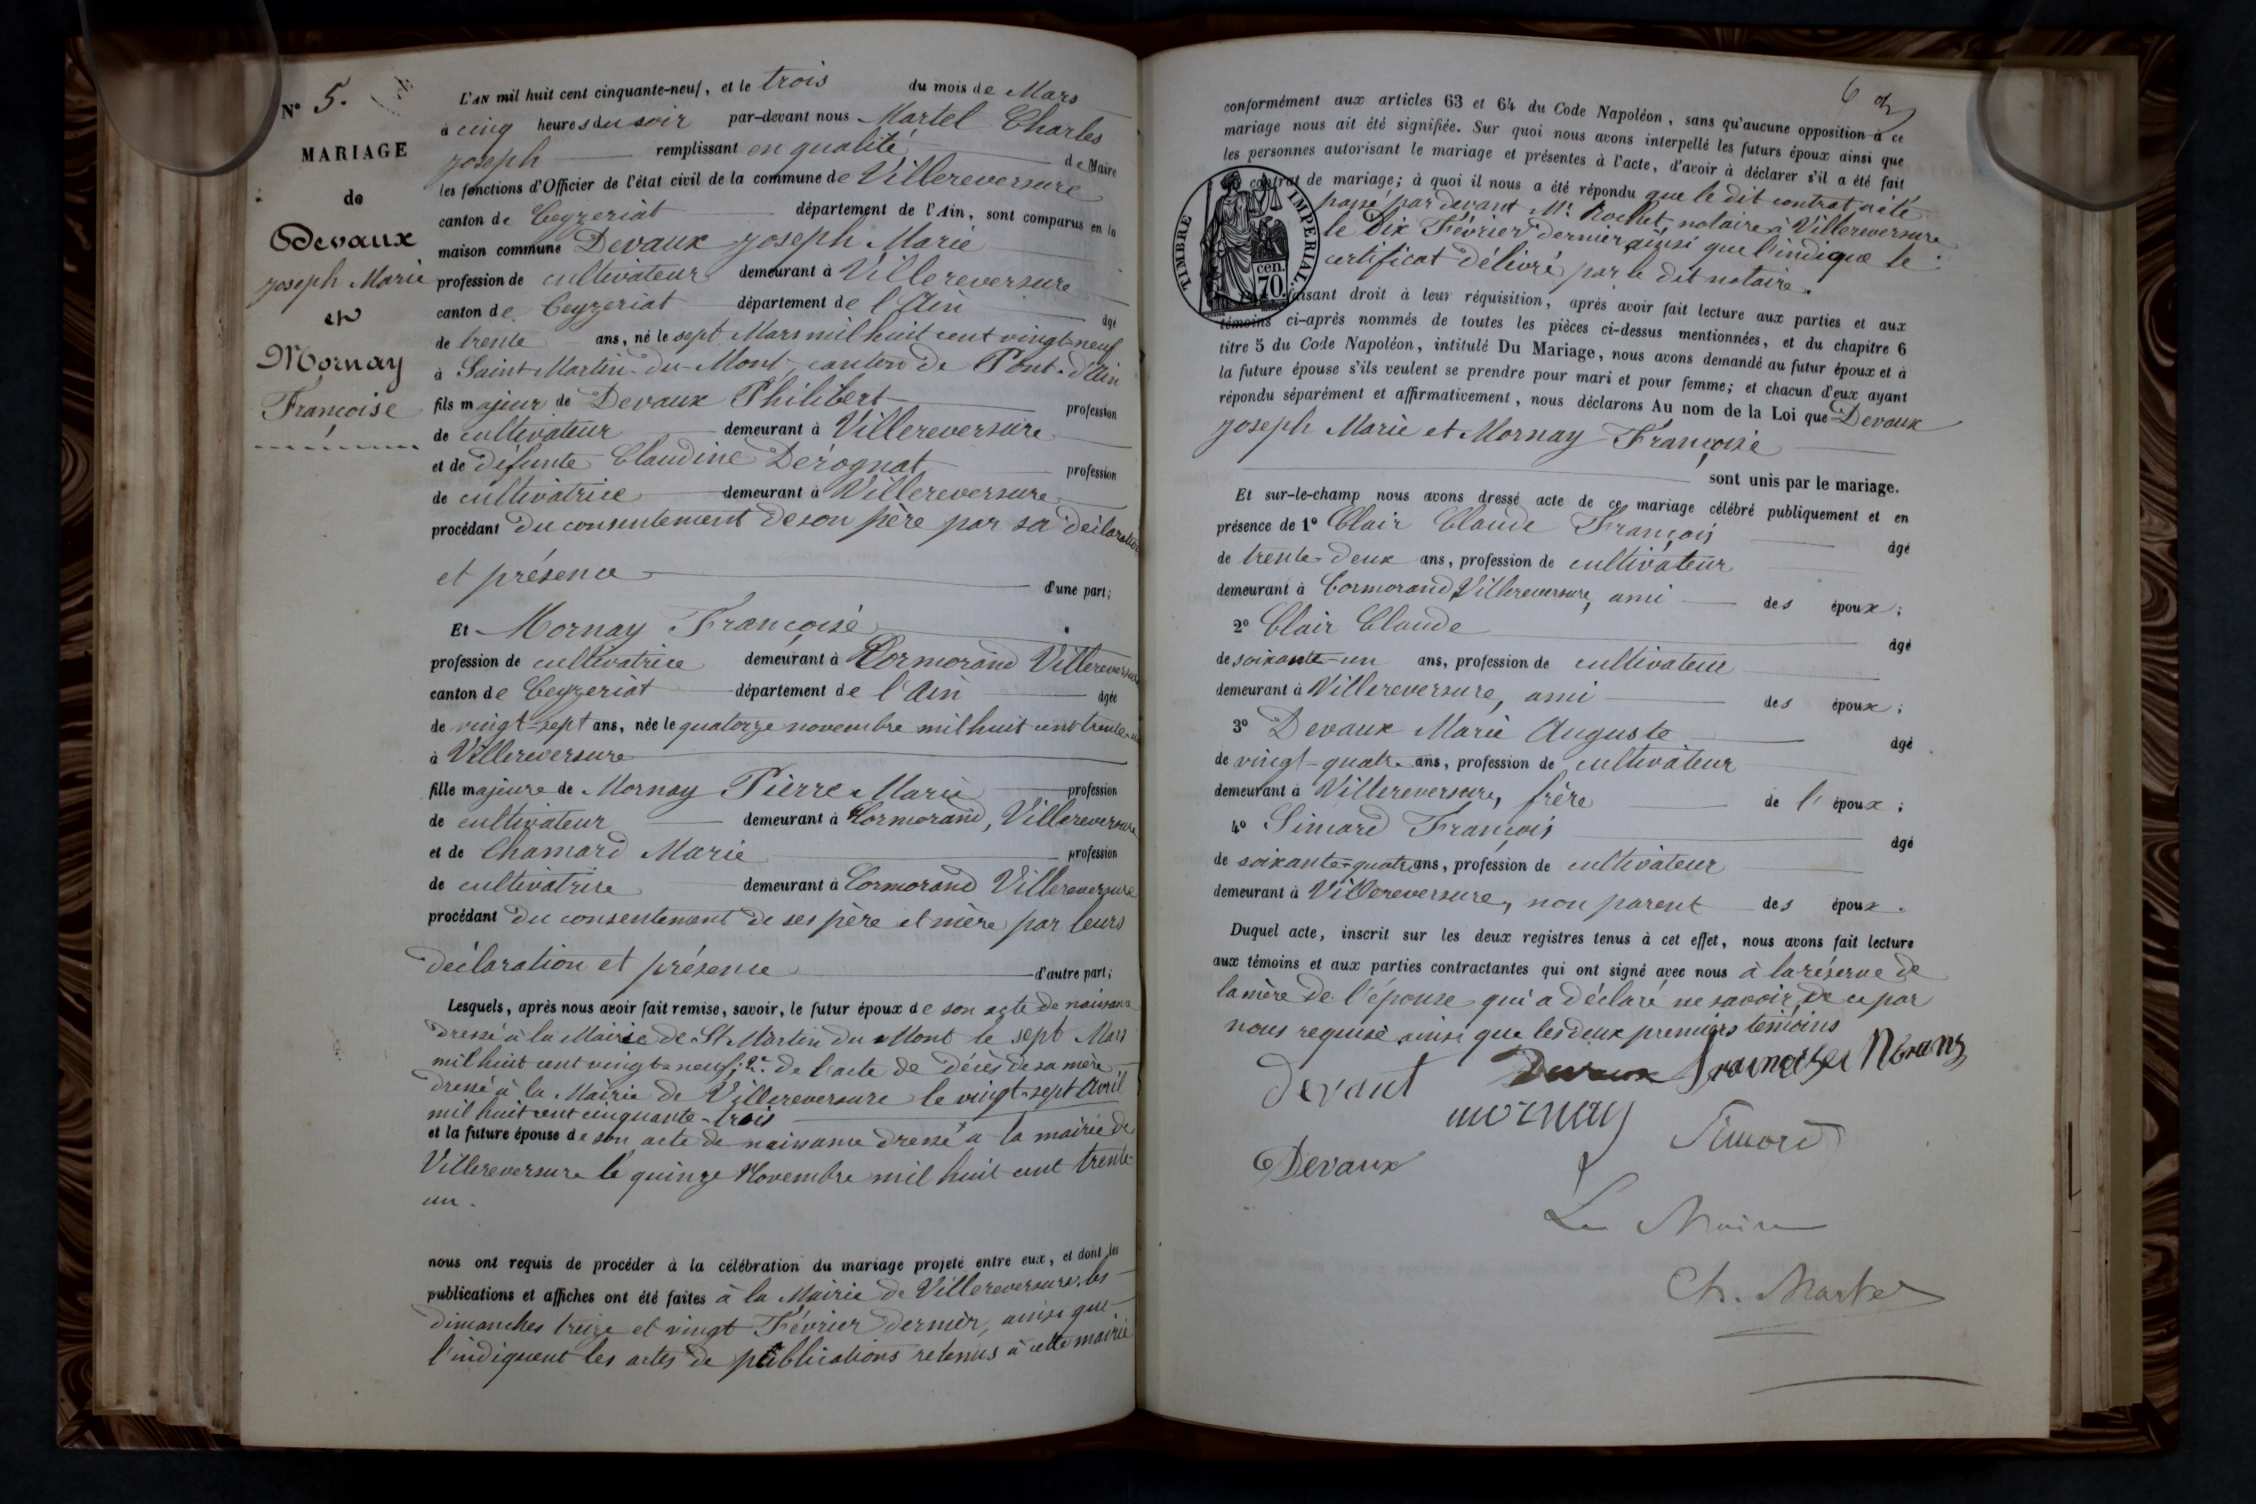 N° 5.
MARIAGE
de
Devaux
Joseph Marie
et
Mornay
Françoise
L'AN mil huit cent cinquante-neuf, et le trois du mois de Mars
à cinq heures du soir par-devant nous Martel Charles
Joseph remplissant en qualité de Maire
les fonctions d'Officier de l'état civil de la commune de Villereversure
canton de Ceyzeriat département de l'Ain, sont comparus en la
maison commune Devaux Joseph Marie
profession de cultivateur demeurant à Villereversure
canton de Ceyzeriat département de l'Ain âgé
de trente ans, né le sept Mars mil huit cent vingt-neuf
à Saint-Martin-du-Mont, canton de Pont-d'Ain
fils majeur de Devaux Philibert profession
de cultivateur demeurant à Villereversure
et de défunte Claudine Dérognat profession
de cultivatrice demeurant à Villereversure
procédant du consentement de son père par sa déclaration
et présence d'une part;
Et Mornay Françoise
profession de cultivatrice demeurant à Cormorand Villereversure
canton de Ceyzeriat département de l'Ain âgée
de vingt-sept ans, née le quatorze novembre mil huit cent trente-un
à Villereversure
fille majeure de Mornay Pierre Marie profession
de cultivateur demeurant à Cormorand, Villereversure
et de Chamard Marie profession
de cultivatrice demeurant à Cormorand Villereversure
procédant du consentement de ses père et mère par leurs
déclaration et présence d'autre part;
Lesquels, après nous avoir fait remise, savoir, le futur époux de son acte de naissance
dressé à la Mairie de St Martin du Mont le sept Mars
mil huit cent vingt-neuf; 2° de l'acte de décès de sa mère
dressé à la Mairie de Villereversure le vingt-sept Avril
mil huit cent cinquante-trois
et la future épouse de son acte de naissance dressé à la mairie de
Villereversure le quinze Novembre mil huit cent trente-
un.
nous ont requis de procéder à la célébration du mariage projeté entre eux, et dont les
publications et affiches ont été faites à la Mairie de Villereversure, les
dimanches treize et vingt Février dernier, ainsi que
l'indiquent les actes de publications retenus à cette mairie
6
conformément aux articles 63 et 64 du Code Napoléon, sans qu'aucune opposition à ce
mariage nous ait été signifiée. Sur quoi nous avons interpellé les futurs époux ainsi que
les personnes autorisant le mariage et présentes à l'acte, d'avoir à déclarer s'il a été fait
contrat de mariage; à quoi il nous a été répondu que le dit contrat a été
passé par devant Me Rochet, notaire à Villereversure
le dix Février dernier, ainsi que l'indique le
certificat délivré par le dit notaire.
TIMBRE IMPERIAL.
cen.
70.
faisant droit à leur réquisition, après avoir fait lecture aux parties et aux
témoins ci-après nommés de toutes les pièces ci-dessus mentionnées, et du chapitre 6
titre 5 du Code Napoléon, intitulé Du Mariage, nous avons demandé au futur époux et à
la future épouse s'ils veulent se prendre pour mari et pour femme; et chacun d'eux ayant
répondu séparément et affirmativement, nous déclarons Au nom de la Loi que Devaux
Joseph Marie et Mornay Françoise
sont unis par le mariage.
Et sur-le-champ nous avons dressé acte de ce mariage célébré publiquement et en
présence de 1° Clair Claude François âgé
de trente-deux ans, profession de cultivateur
demeurant à Cormorand, Villereversure, ami des époux;
2° Clair Claude âgé
de soixante-un ans, profession de cultivateur
demeurant à Villereversure, ami des époux;
3° Devaux Marie Auguste âgé
de vingt-quatre ans, profession de cultivateur
demeurant à Villereversure, frère de l'époux;
4° Simard François âgé
de soixante-quatre ans, profession de cultivateur
demeurant à Villereversure, non parent des époux.
Duquel acte, inscrit sur les deux registres tenus à cet effet, nous avons fait lecture
aux témoins et aux parties contractantes qui ont signé avec nous à la réserve de
la mère de l'épouse qui a déclaré ne savoir de ce par
nous requise ainsi que les deux premiers témoins
devaut Devaux
mornay Simard
Devaux
Le Maire
Ch. Martel